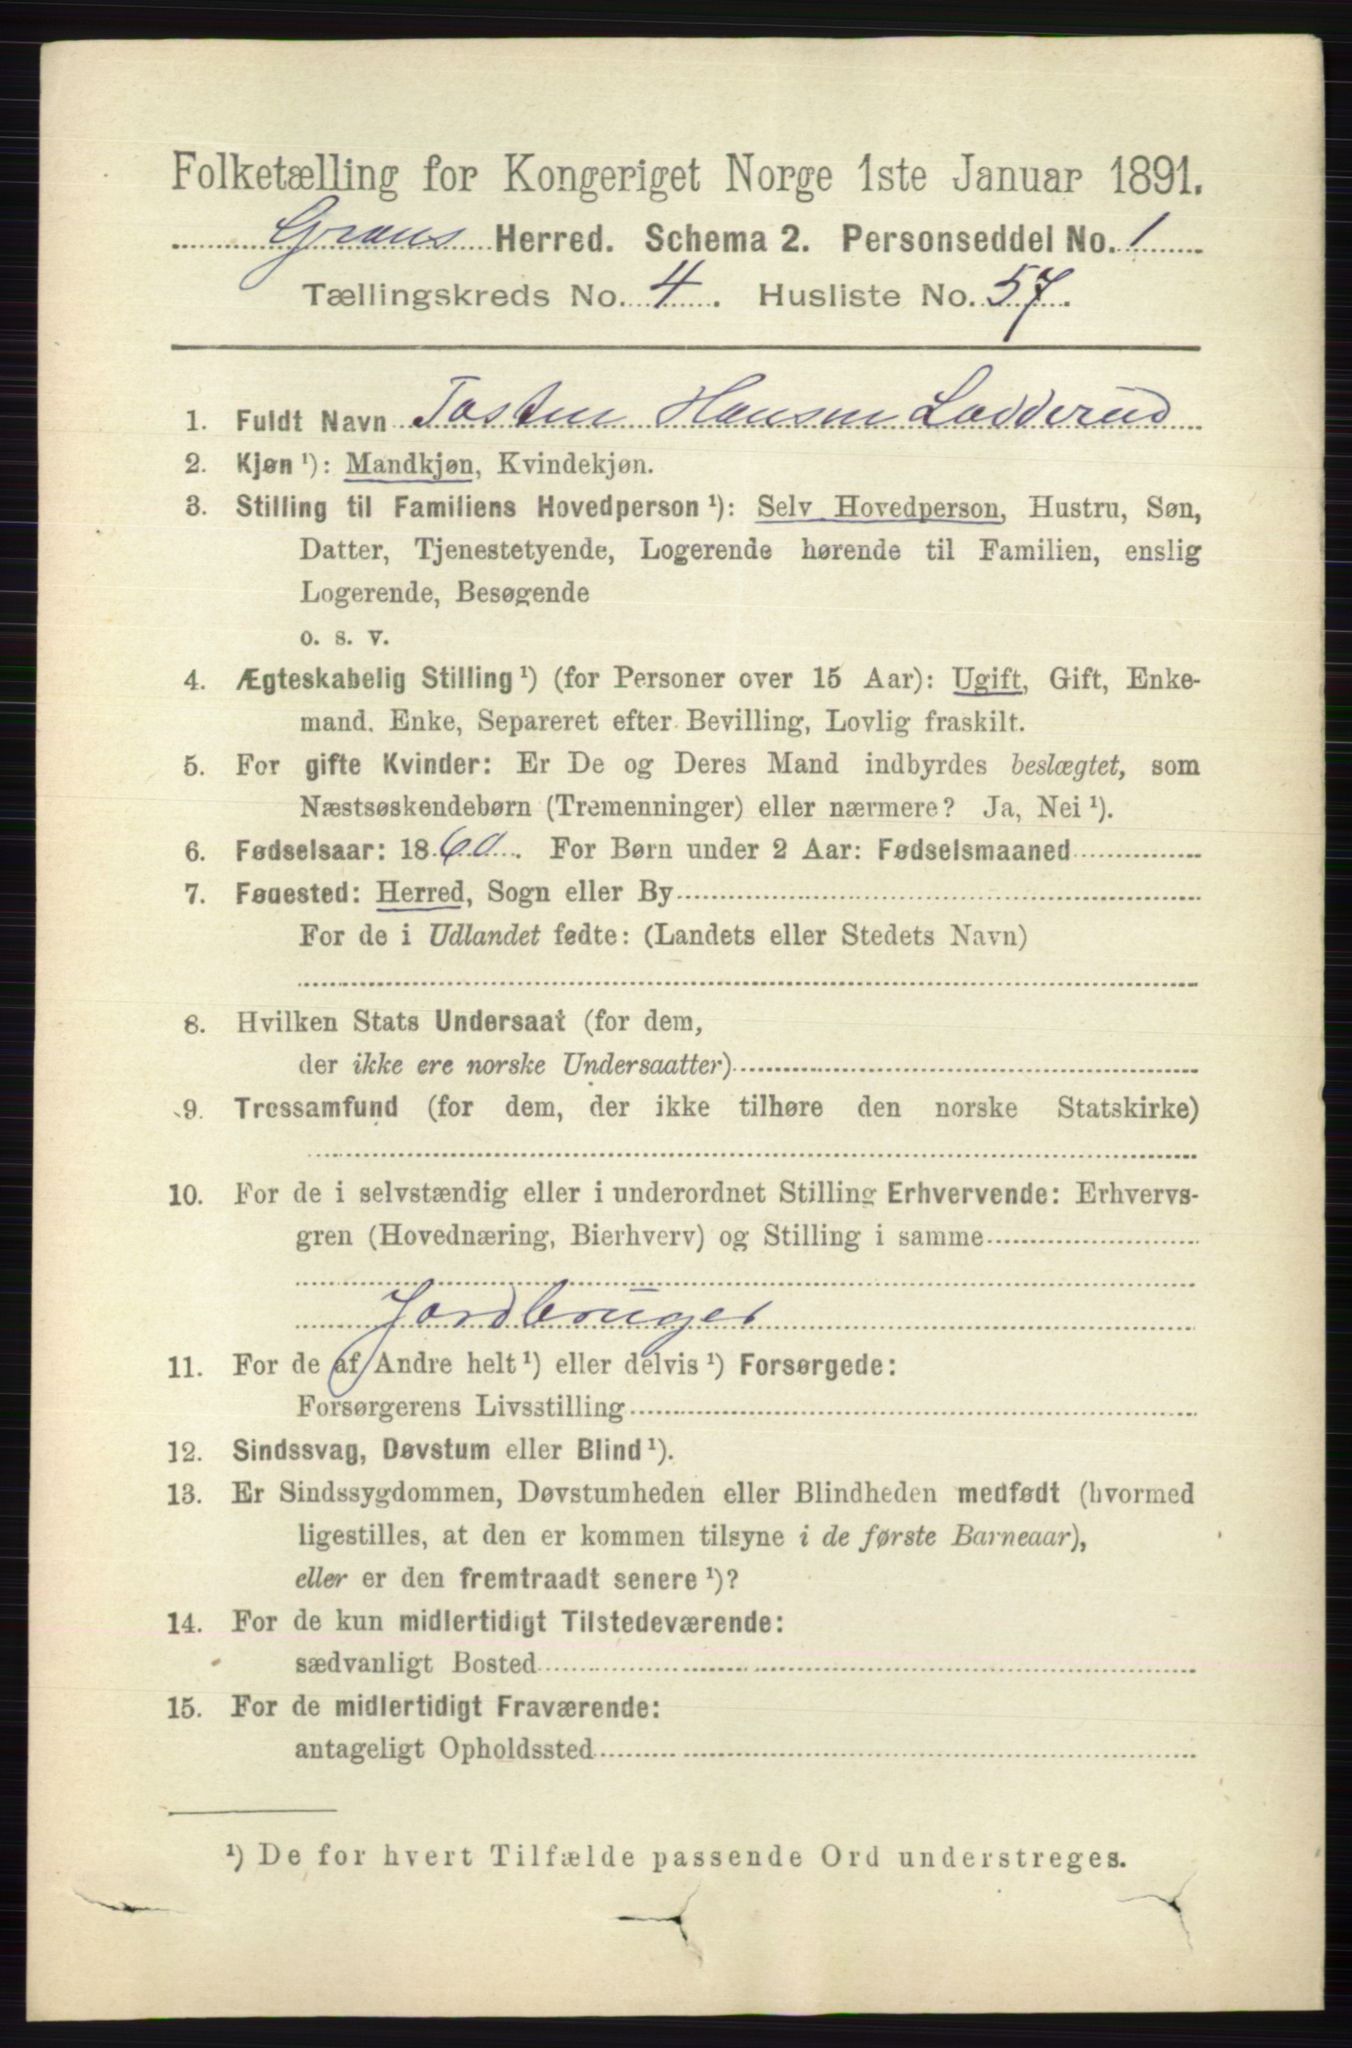 Folketælling for Kongeriget Norge 1ste Januar 1891.
Grans Herred. Schema 2. Personseddel No. 1
Tællingskreds No. 4. Husliste No. 57.
1. Fuldt Navn Tosten Hansen Lodderud
2. Kjøn ¹): Mandkjøn, Kvindekjøn.
3. Stilling til Familiens Hovedperson ¹): Selv Hovedperson, Hustru, Søn,
Datter, Tjenestetyende, Logerende hørende til Familien, enslig
Logerende, Besøgende
o. s. v.
4. Ægteskabelig Stilling ¹) (for Personer over 15 Aar): Ugift, Gift, Enke-
mand. Enke, Separeret efter Bevilling, Lovlig fraskilt.
5. For gifte Kvinder: Er De og Deres Mand indbyrdes beslægtet, som
Næstsøskendebørn (Tremenninger) eller nærmere? Ja, Nei ¹).
6. Fødselsaar: 1860. For Børn under 2 Aar: Fødselsmaaned
7. Føuested: Herred, Sogn eller By
For de i Udlandet fødte: (Landets eller Stedets Navn)
8. Hvilken Stats Undersaat (for dem,
der ikke ere norske Undersaatter)
9. Trossamfund (for dem, der ikke tilhøre den norske Statskirke)
10. For de i selvstændig eller i underordnet Stilling Erhvervende: Erhvervs-
gren (Hovednæring, Bierhverv) og Stilling i samme
Jordbruger
11. For de af Andre helt ¹) eller delvis ¹) Forsørgede:
Forsørgerens Livsstilling
12. Sindssvag, Døvstum eller Blind ¹).
13. Er Sindssygdommen, Døvstumheden eller Blindheden medfødt (hvormed
ligestilles, at den er kommen tilsyne i de første Barneaar),
eller er den fremtraadt senere ¹)?
14. For de kun midlertidigt Tilstedeværende:
sædvanligt Bosted
15. For de midlertidigt Fraværende:
antageligt Opholdssted
¹) De for hvert Tilfælde passende Ord understreges.